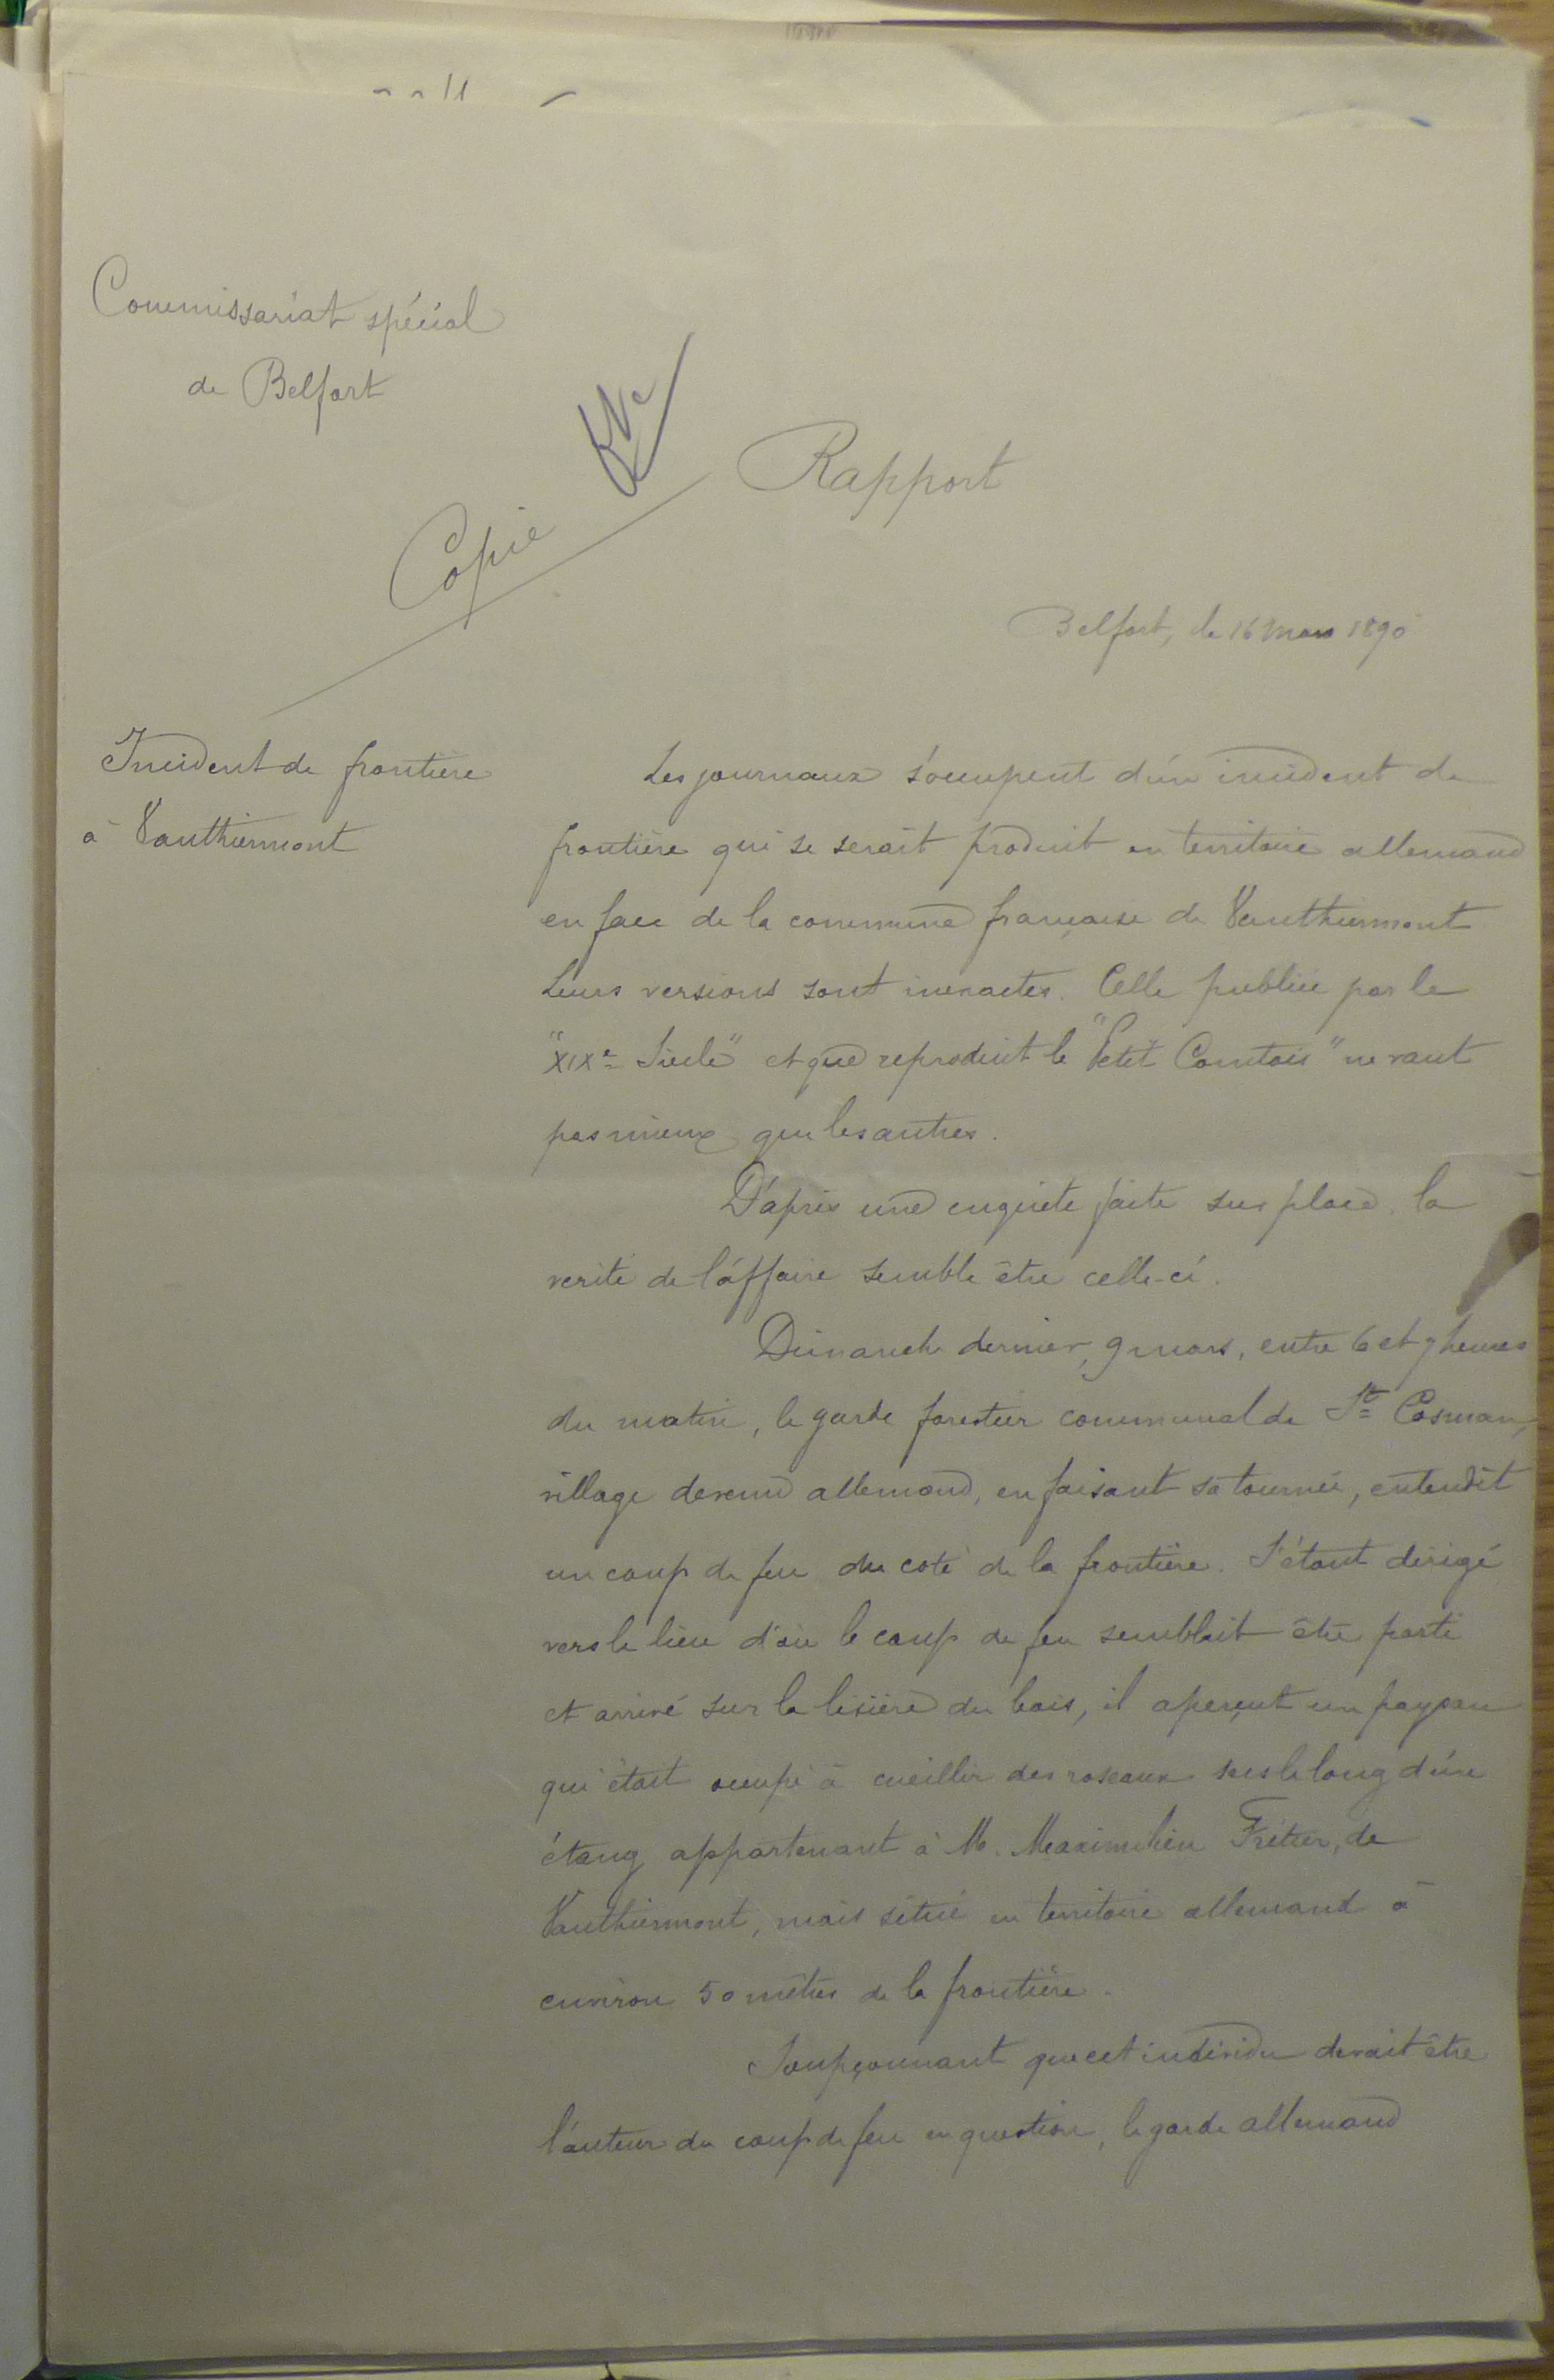 Commissariat spécial
de Belfort
Copie
Rapport
Belfort, le 16 Mars 1890
Incident de frontière
à Vauthiermont
Les journaux s'occupent d'un incident de
frontière qui se serait produit en territoire allemand
en face de la commune française de Vauthiermont
Leurs versions sont inexactes. Celle publiée par le
"XIXe Siècle" et que reproduit le "Petit Comtois" ne vaut
pas mieux que les autres.
D'après une enquête faite sur place, la
verité de l'affaire semble être celle-ci.
Dimanche dernier, 9 mars, entre 6 et 7 heures
du matin, le garde forestier communal de St Cosman,
village devenu allemand, en faisant sa tournée, entendit
un coup de feu du coté de la frontière. S'étant dirigé
vers le lieu d'où le coup de feu semblait être parti
et arrivé sur la lisière du bois, il aperçut un paysan
qui était occupé à cueillir des roseaux secs le long d'un
étang appartenant à M. Maximilien Frétier, de
Vauthiermont, mais situé en territoire allemand à
environ 50 mètres de la frontière.
Soupçonnant que cet individu devait être
l'auteur du coup de feu en question, le garde allemand